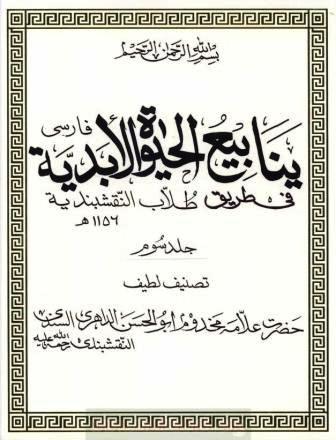 بسم الله الرحمن الرحيم
ينابيع الحياة الأبدية فارسی
في طريق طلاب النقشبندية
۱۱۵۶ھ
جلد سوم
تصنیف لطیف
حضرت علامه مخدوم ابوالحسن الداهری السندی
النقشبندی رحمة الله علیه